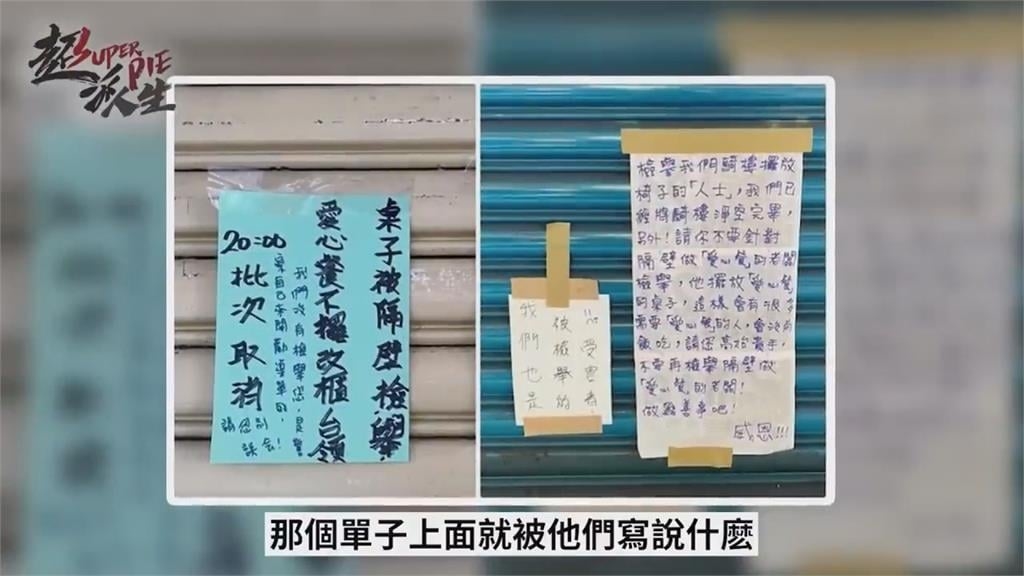 超派生
SUPER
PIE
桌子被隔壁檢舉,
愛心餐不擺改櫃台領
我們沒有檢舉您,是警
察自己來開勸導單的,
請您別
誤會!
20:00
批次取消
受害者,
被檢舉的
我們也是
檢舉我們騎樓擺放
椅子的「人士」,我們已
經將騎樓淨空完畢,
另外!請你不要針對
隔壁做「愛心餐」的老闆
檢舉,他擺放「愛心餐」
的桌子,這樣會有很多
需要「愛心餐」的人,會沒有
飯吃,請您高抬貴手,
不要再檢舉隔壁做
「愛心餐」的老闆!
做點善事吧!
感恩!!!
那個單子上面就被他們寫說什麼